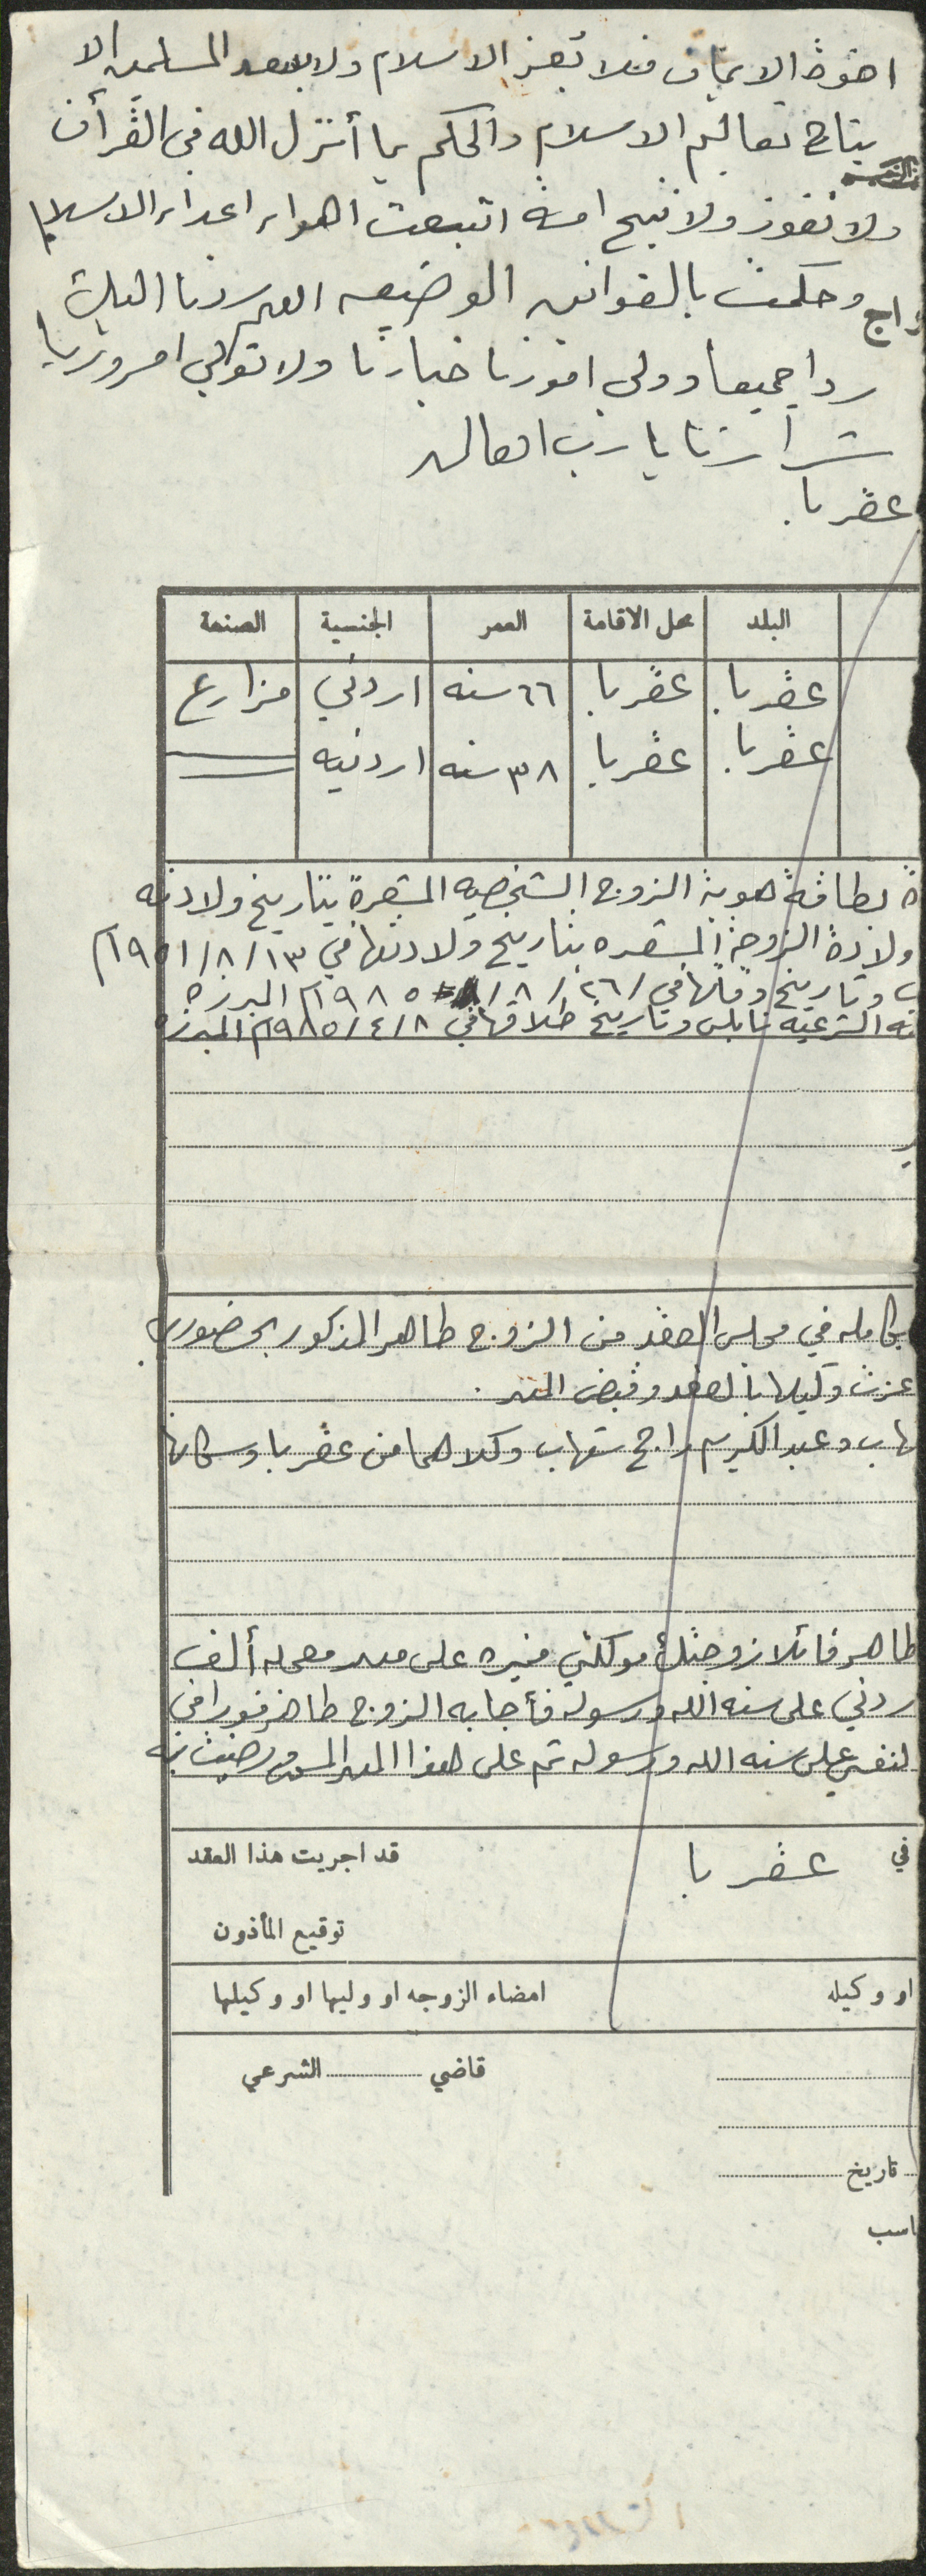 اخوة الايمان فلا تعز الاسلام ولا يسعد المسلمين الا
باتباع تعاليم الاسلام والحكم بما أنزل الله في القرآن
ولا تفوز ولا تنجح امة اتبعت اهواء اعداء الاسلام
وحكمت بالقوانين الوضعيه اللهم ردنا اليك
راج
ردا جميعا وولي امورنا خيارنا ولا تولي امورنا يا
شرارنا يا رب العالمين
عقربا.
البلد محل الاقامة العمر الجنسية الصنعة
عقربا عقربا ٦٦ سنه اردني مزارع
عقربا عقربا ٣٨ سنه اردنيه
ة بطاقة هوية الزوج الشخصيه المشعرة بتاريخ ولادته
ولادة الزوجة المشعره بتاريخ ولادتها في ١٣/٨/١٩٥١م
وتاريخ وفاتها في ٢٦/٨/١٩٨٥م المبرزه
الشرعيه نابلس وتاريخ طلاقها في ٨/٤/١٩٨٥م المبرزه
بكامله في مجلس العقد من الزوج طاهر المذكور بحضوري
عزت وكيلها بالعقد وقبض المهر.
هاب وعبد الكريم راجح شهاب وكلاهما من عقربا وسكانها
طاهر قائلا زوجتك موكلتي منيره على مهر معجله ألف
ردني على سنة الله ورسوله فأجابه الزوج طاهر فورا في
لنفسي على سنه الله ورسوله تم على هذا المهر المسمى ورضيت به
في عقربا قد اجريت هذا العقد
توقيع المأذون
او وكيله امضاء الزوجه او وليها او وكيلها
قاضي الشرعي
تاريخ
اسب